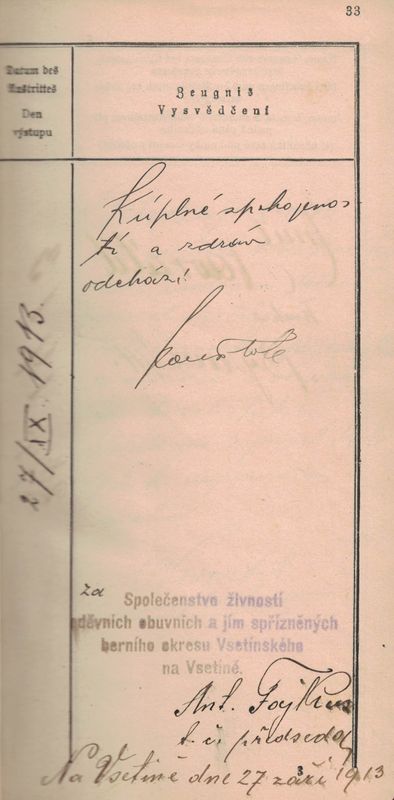 33
Datum des
Austrittes
Den
výstupu
Zeugniß
Vysvědčení
K úplné spokojenos
ti a zdráv
odchází!
27/IX 1913.
za
Společenstvo živností
oděvních obuvních a jím spřízněných
berního okresu Vsetínského
na Vsetíně.
Ant. Fajkus
t. č. předseda
Na Vsetíně dne 27 září 1913
3